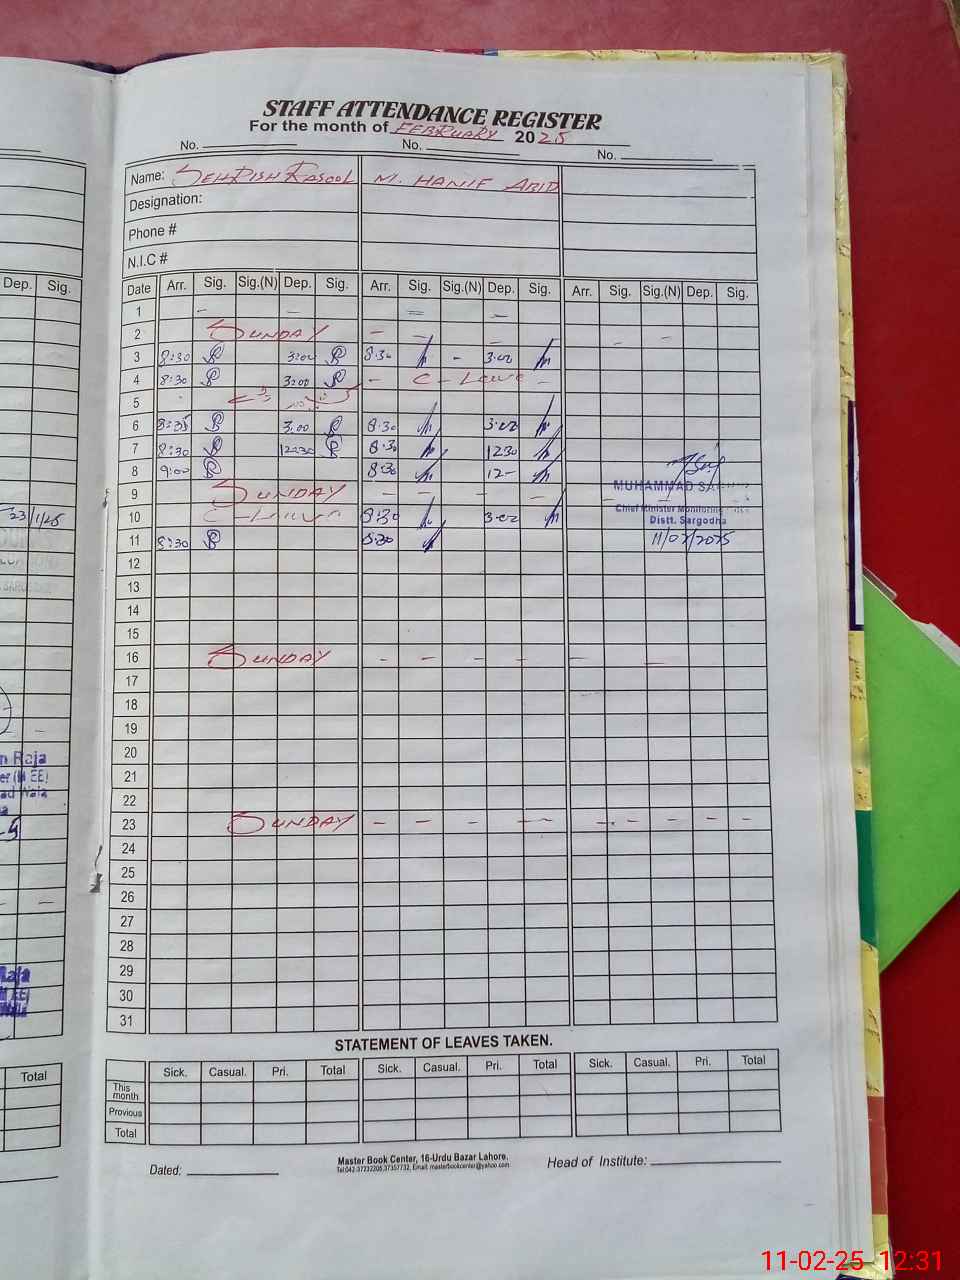 STAFF ATTENDANCE REGISTER
For the month of FEBRUARY 2025
No. No. No.
Name: SEHRISH RASOOL M. HANIF ABID
Designation:
Phone #
N.I.C #
Dep. Sig.
Date Arr. Sig. Sig.(N) Dep. Sig. Arr. Sig. Sig.(N) Dep. Sig. Arr. Sig. Sig.(N) Dep. Sig.
1 - - = =
2 SUNDAY - - - - -
3 8:30 3:00 8.30 - 3.00
4 8:30 3:00 - C-Leave -
5
6 8:35 3.00 8.30 3.00
7 8:30 12:30 8.30 1230
8 9:00 8:30 12-
9 SUNDAY - - - -
MUHAMMAD
10 C-Leave 8:30 3.00
Chief Minister Monitoring
Distt. Sargodha
23/1/25
11 8:30 8:30
11/02/2025
12
13
14
15
16 SUNDAY - - - - - -
17
18
19
20
Raja
21
22
23 SUNDAY - - - - - - - - -
24
25
26
27
28
29
30
31
STATEMENT OF LEAVES TAKEN.
Sick. Casual. Pri. Total Sick. Casual. Pri. Total Sick. Casual. Pri. Total
Total
This month
Previous
Total
Dated:
Master Book Center, 16-Urdu Bazar Lahore.
Tel:042-37232205,37357732, Email: masterbookcenter@yahoo.com
Head of Institute:
11-02-25 12:31